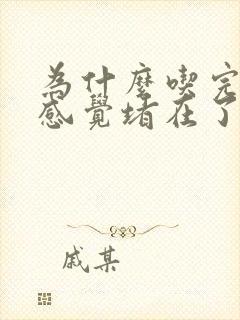 為什麼喫完
感覺堵在了
戚某